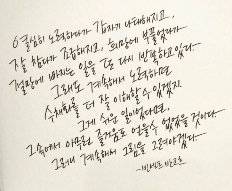 열심히 노력하다가 갑자기 나태해지고,
잘 참다가 조급해지고, 희망에 부풀었다가
절망에 빠지는 일을 또 다시 반복하고 있다.
그래도 계속해서 노력하면
수채화를 더 잘 이해할 수 있겠지.
그게 쉬운 일이었다면,
그 속에서 아무런 즐거움도 얻을 수 없었을 것이다.
그러니 계속해서 그림을 그려야겠다.
-빈센트 반 고흐-